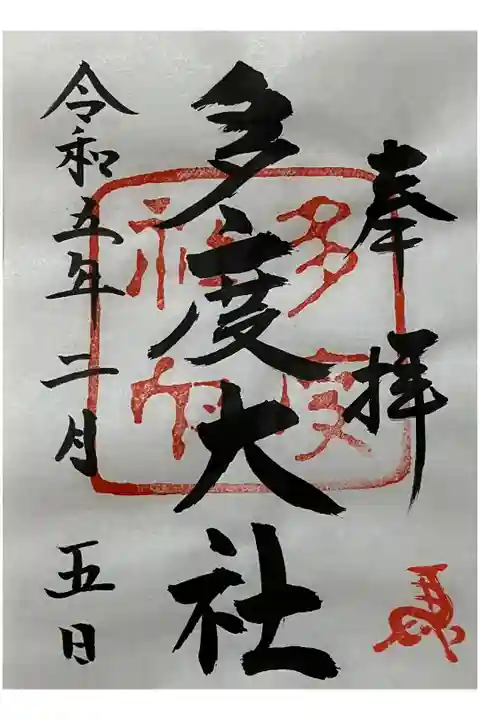 奉拝
多度大社
令和五年二月五日
多度
神社